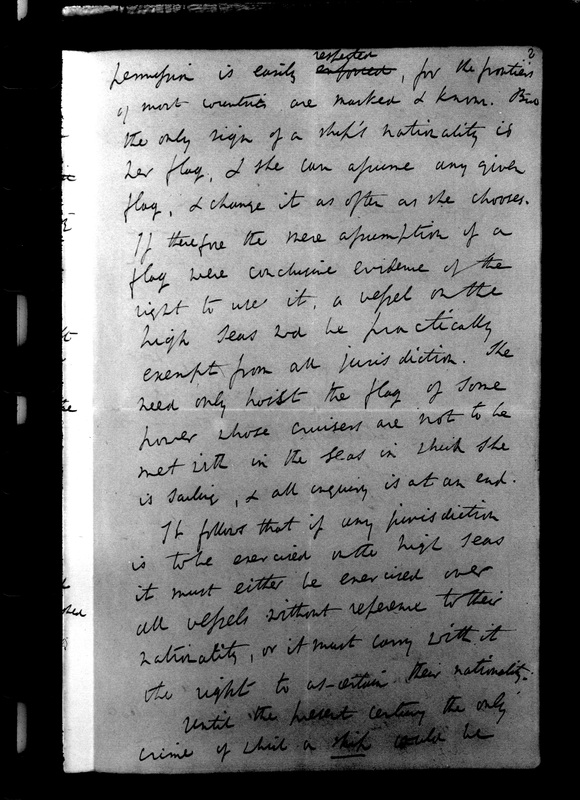 2
permission is easily respected enforced, for the frontiers
of most countries are marked & known. But
the only sign of a ship's nationality is
her flag, & she can assume any given
flag, & change it as often as she chooses.
If therefore the mere assumption of a
flag were conclusive evidence of the
right to use it, a vessel on the
high seas wd be practically
exempt from all jurisdiction. She
need only hoist the flag of some
power whose cruisers are not to be
met with in the seas in which she
is sailing, & all inquiry is at an end.
It follows that if any jurisdiction
is to be exercised on the high seas
it must either be exercised over
all vessels without reference to their
nationality, or it must carry with it
the right to ascertain their nationality.
Until the present century the only
crime of which a ship could be